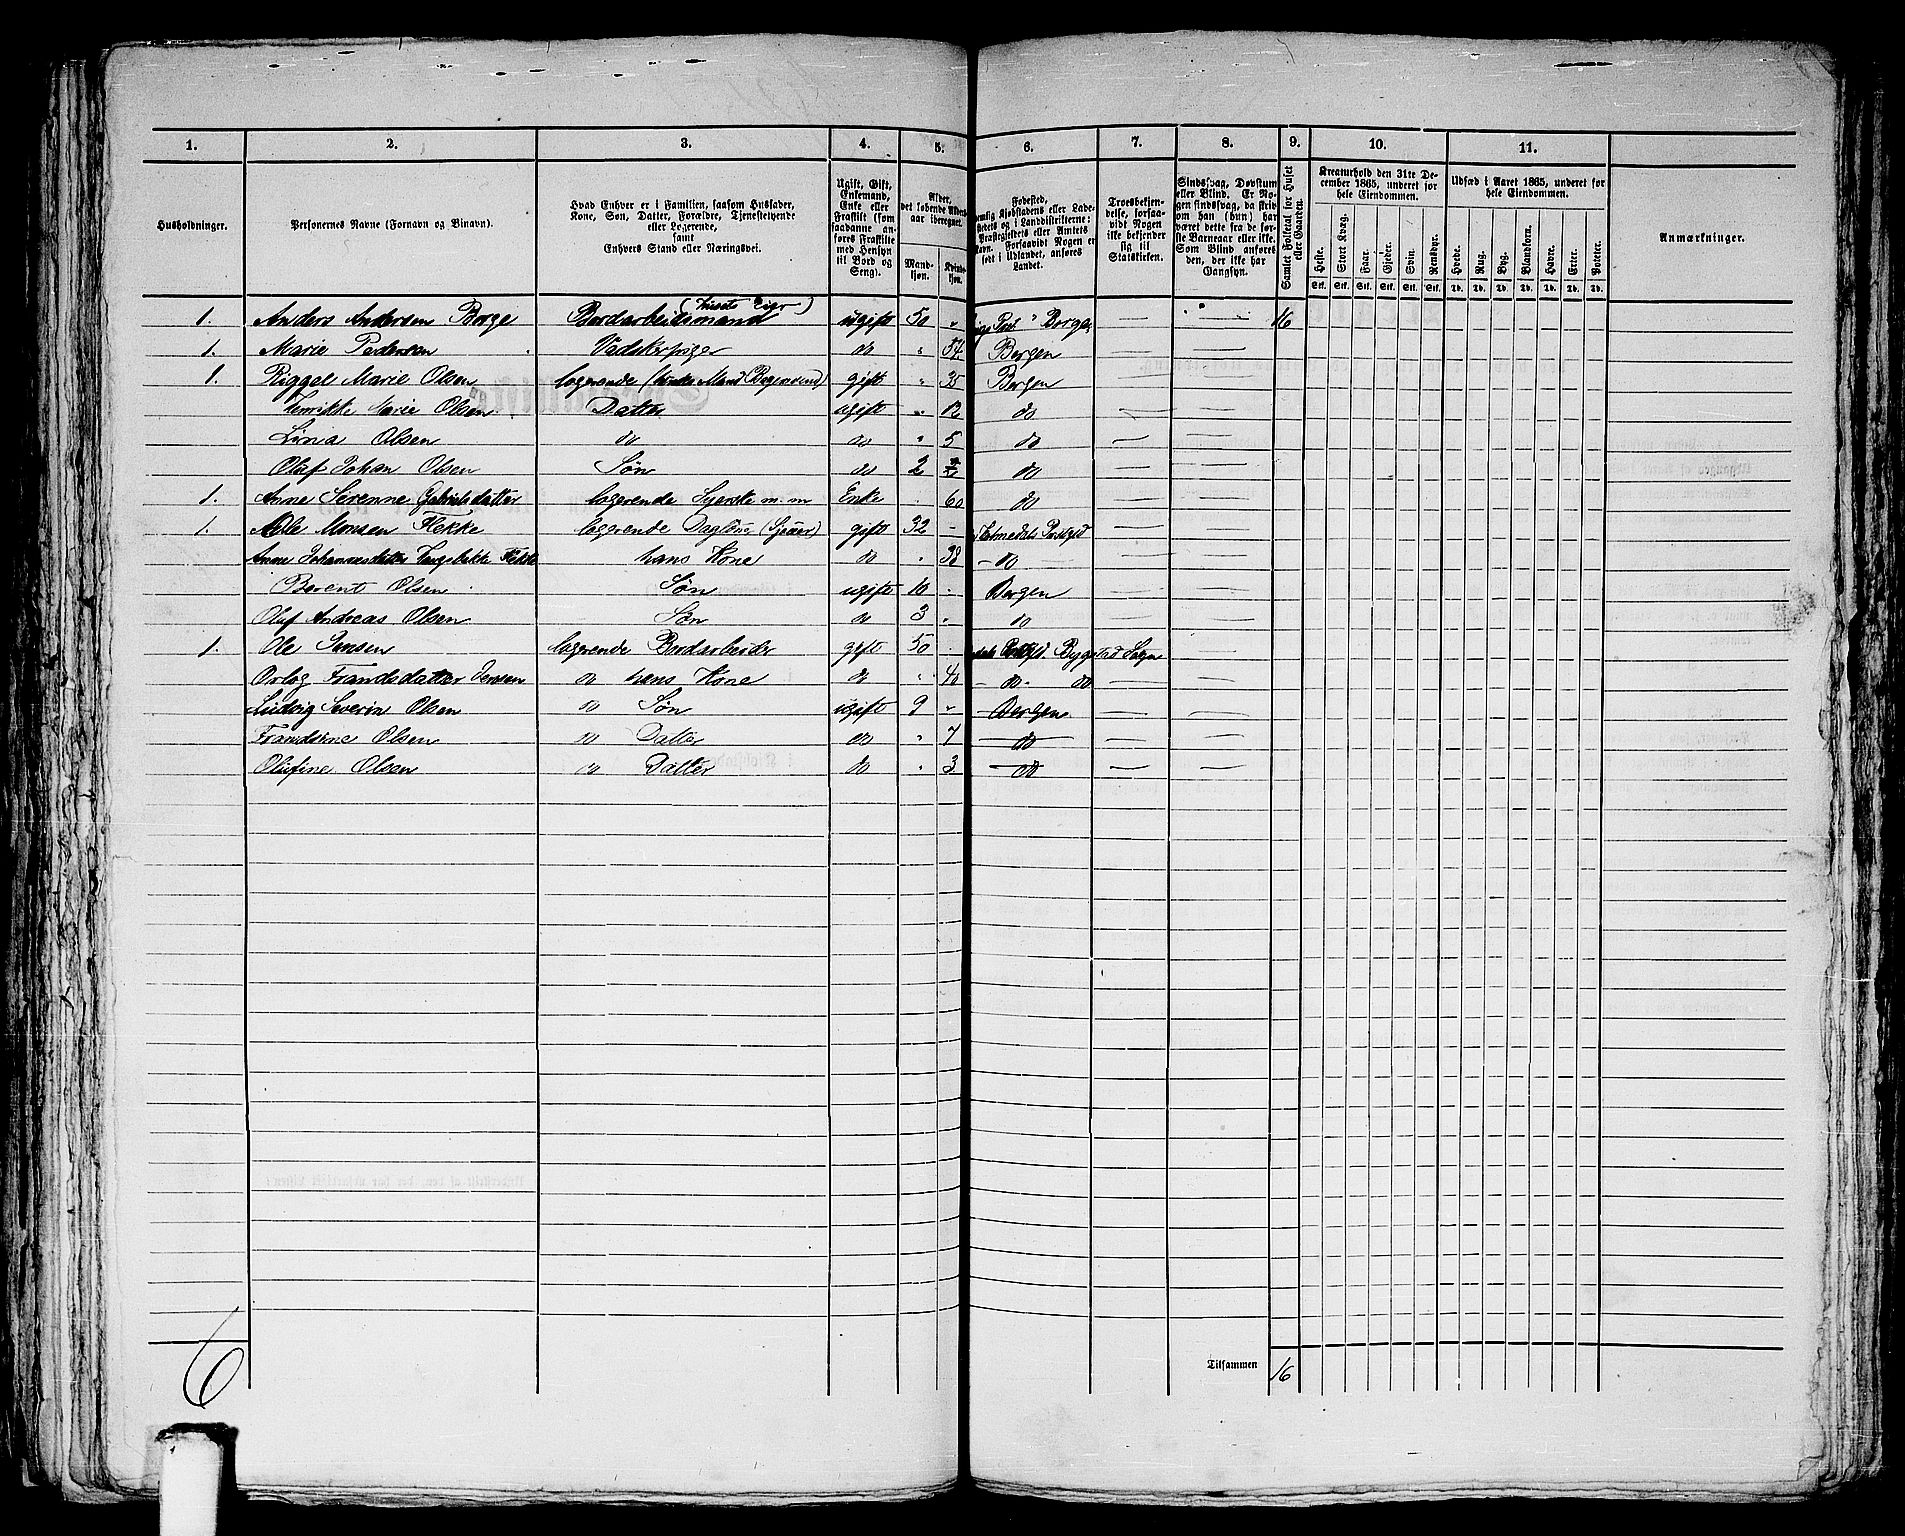 1. 2. 3. 4. 5. 6. 7. 8. 9. 10. 11.
Husholdninger.
Personernes Navne (Fornavn og Binavn).
Hvad Enhver er i Familien, saasom Husfader,
Kone, Søn, Datter, Forældre, Tjenestetyende
eller Logerende,
samt
Enhvers Stand eller Næringsvei.
Ugift, Gift,
Enkemand,
Enke eller
Fraskilt (som
saadanne an-
føres Fraskilte
med Hensyn
til Bord og
Seng).
Alder,
det løbende Alders-
aar iberegnet.
Mand-
kjøn.
Kvinde-
kjøn.
Fødested,
nemlig Kjøbstadens eller Lade-
stedets og i Landdistrikterne:
Præstegjeldets eller Amtets
Navn. Forsaavidt Nogen er
født i Udlandet, anføres
Landet.
Troesbekjen-
delse, forsaa-
vidt Nogen
ikke bekjender
sig til
Statskirken.
Sindssvag, Døvstum
eller Blind. Er No-
gen sindssvag, da skriv
om han (hun) har
været dette fra de før-
ste Barneaar eller ikke.
Som Blind anføres
den, der ikke har
Gangsyn.
Samlet Folketal for Huset
eller Gaarden.
Kreaturhold den 31te De-
cember 1865, underet for
hele Eiendommen.
Heste. Stort Kvæg. Faar. Gjeder. Svin. Rensdyr.
Stk. Stk. Stk. Stk. Stk. Stk.
Udsæd i Aaret 1865, underet for
hele Eiendommen.
Hvede. Rug. Byg. Blandkorn. Havre. Erter. Poteter.
Td. Td. Td. Td. Td. Td. Td.
Anmærkninger.
1. Anders Andersen Borge Bordarbeidsmand (Husets Eier) ugift 50 " Borge 16
1. Marie Pedersen do " 57 Bergen
1. Olsen logerende gift " 35 Bergen
Henrikke Marie Olsen Datter ugift " 12 do
Lina Olsen do do " 5 do
Oluf Johan Olsen Søn do 2 do
1. Anne Serenne Gabrielsdatter logerende Syerske m. m Enke 60 do
1. Ole Monsen Flekke logerende gift 32 -
Anne Johannesdatter Flekke hans Kone do " 38 - do
Berent Olsen Søn ugift 10 Bergen
Oluf Andreas Olsen Søn do 3 " do
1. Ole Jensen logerende Bordarbeider gift 50 Bygstad Sogn
Frandsdatter Jensen do hans Kone do " 40 - do - do
Ludvig Severin Olsen do Søn ugift 9 " - Bergen
Frandsine Olsen do Datter do " 7 - do
Olufine Olsen do Datter do " 3 - do
Tilsammen 16
6